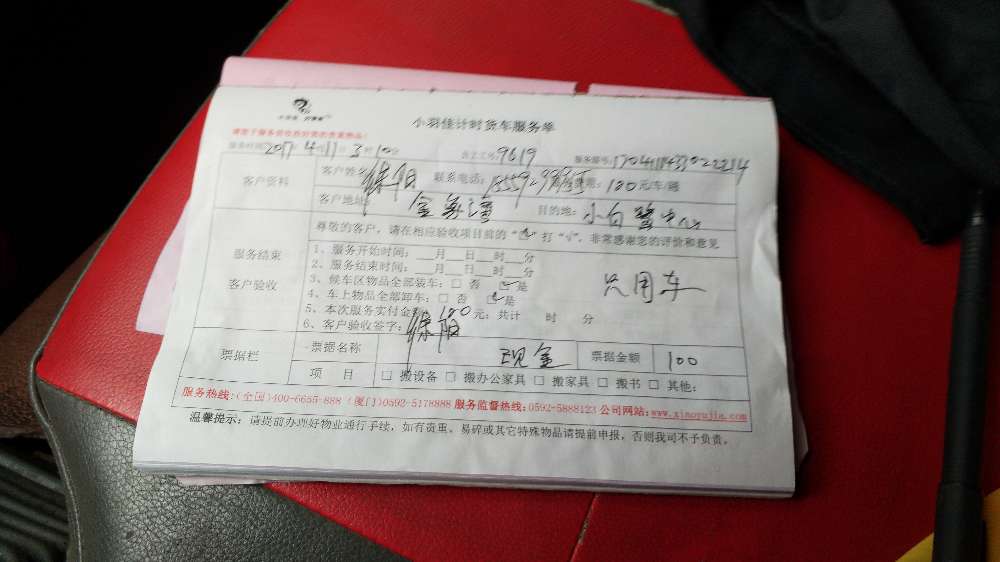 小羽佳计时货车服务单
请您于服务前收拾好您的贵重物品!
服务时间:2017年4月11日3时10分 员工工号:9619 服务编号:
客户资料 客户姓名: 联系电话: 服务费用:100元/车/趟
客户地址: 目的地:小白鹭中心
尊敬的客户,请在相应验收项目前的“□”打“√”,非常感谢您的评价和意见
服务结束
客户验收
1、服务开始时间:___月___日___时___分
2、服务结束时间:___月___日___时___分
3、候车区物品全部装车:□ 否 ☑是
4、车上物品全部卸车:□ 否 ☑是
只用车
5、本次服务实付金额:100元;共计 时 分
6、客户验收签字:
票据栏 票据名称 现金 票据金额 100
项 目 □ 搬设备 □ 搬办公家具 □ 搬家具 □ 搬书 □ 其他:
服务热线:(全国)400-6655-888 (厦门)0592-5178888 服务监督热线:0592-5888123 公司网站:www.xiaoyujia.com
温馨提示:请提前办理好物业通行手续,如有贵重、易碎或其它特殊物品请提前申报,否则我司不予负责。